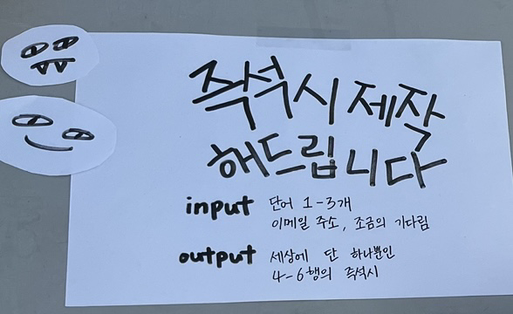 즉석시 제작
해드립니다
input 단어 1-3개
이메일 주소, 조금의 기다림
output 세상에 단 하나뿐인
4-6행의 즉석시